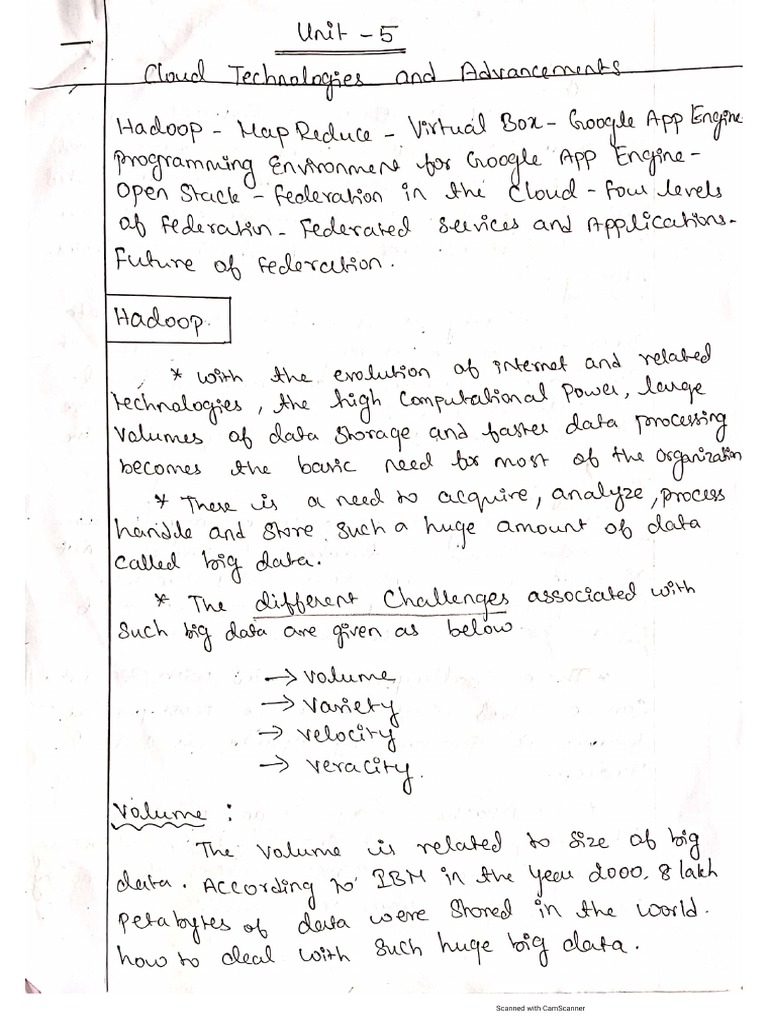 Unit - 5
Cloud Technologies and Advancements
Hadoop - Map Reduce - Virtual Box - Google App Engine
programming Environment for Google App Engine -
Open Stack - Federation in the Cloud - four levels
of federatin - Federated Services and Applications -
Future of federation.
Hadoop.
* with the evolution of internet and related
technologies, the high Computational Power, large
volumes of data storage and faster data processing
becomes the basic need for most of the organization
* There is a need to acquire, analyze, process
handle and store such a huge amount of data
called big data.
* The different Challenges associated with
such big data are given as below.
→ volume
→ variety
→ velocity
→ veracity.
Volume :
The volume is related to size of big
data. According to IBM in the year 2000, 8 lakh
petabytes of data were stored in the world.
how to deal with such huge big data.
Scanned with CamScanner